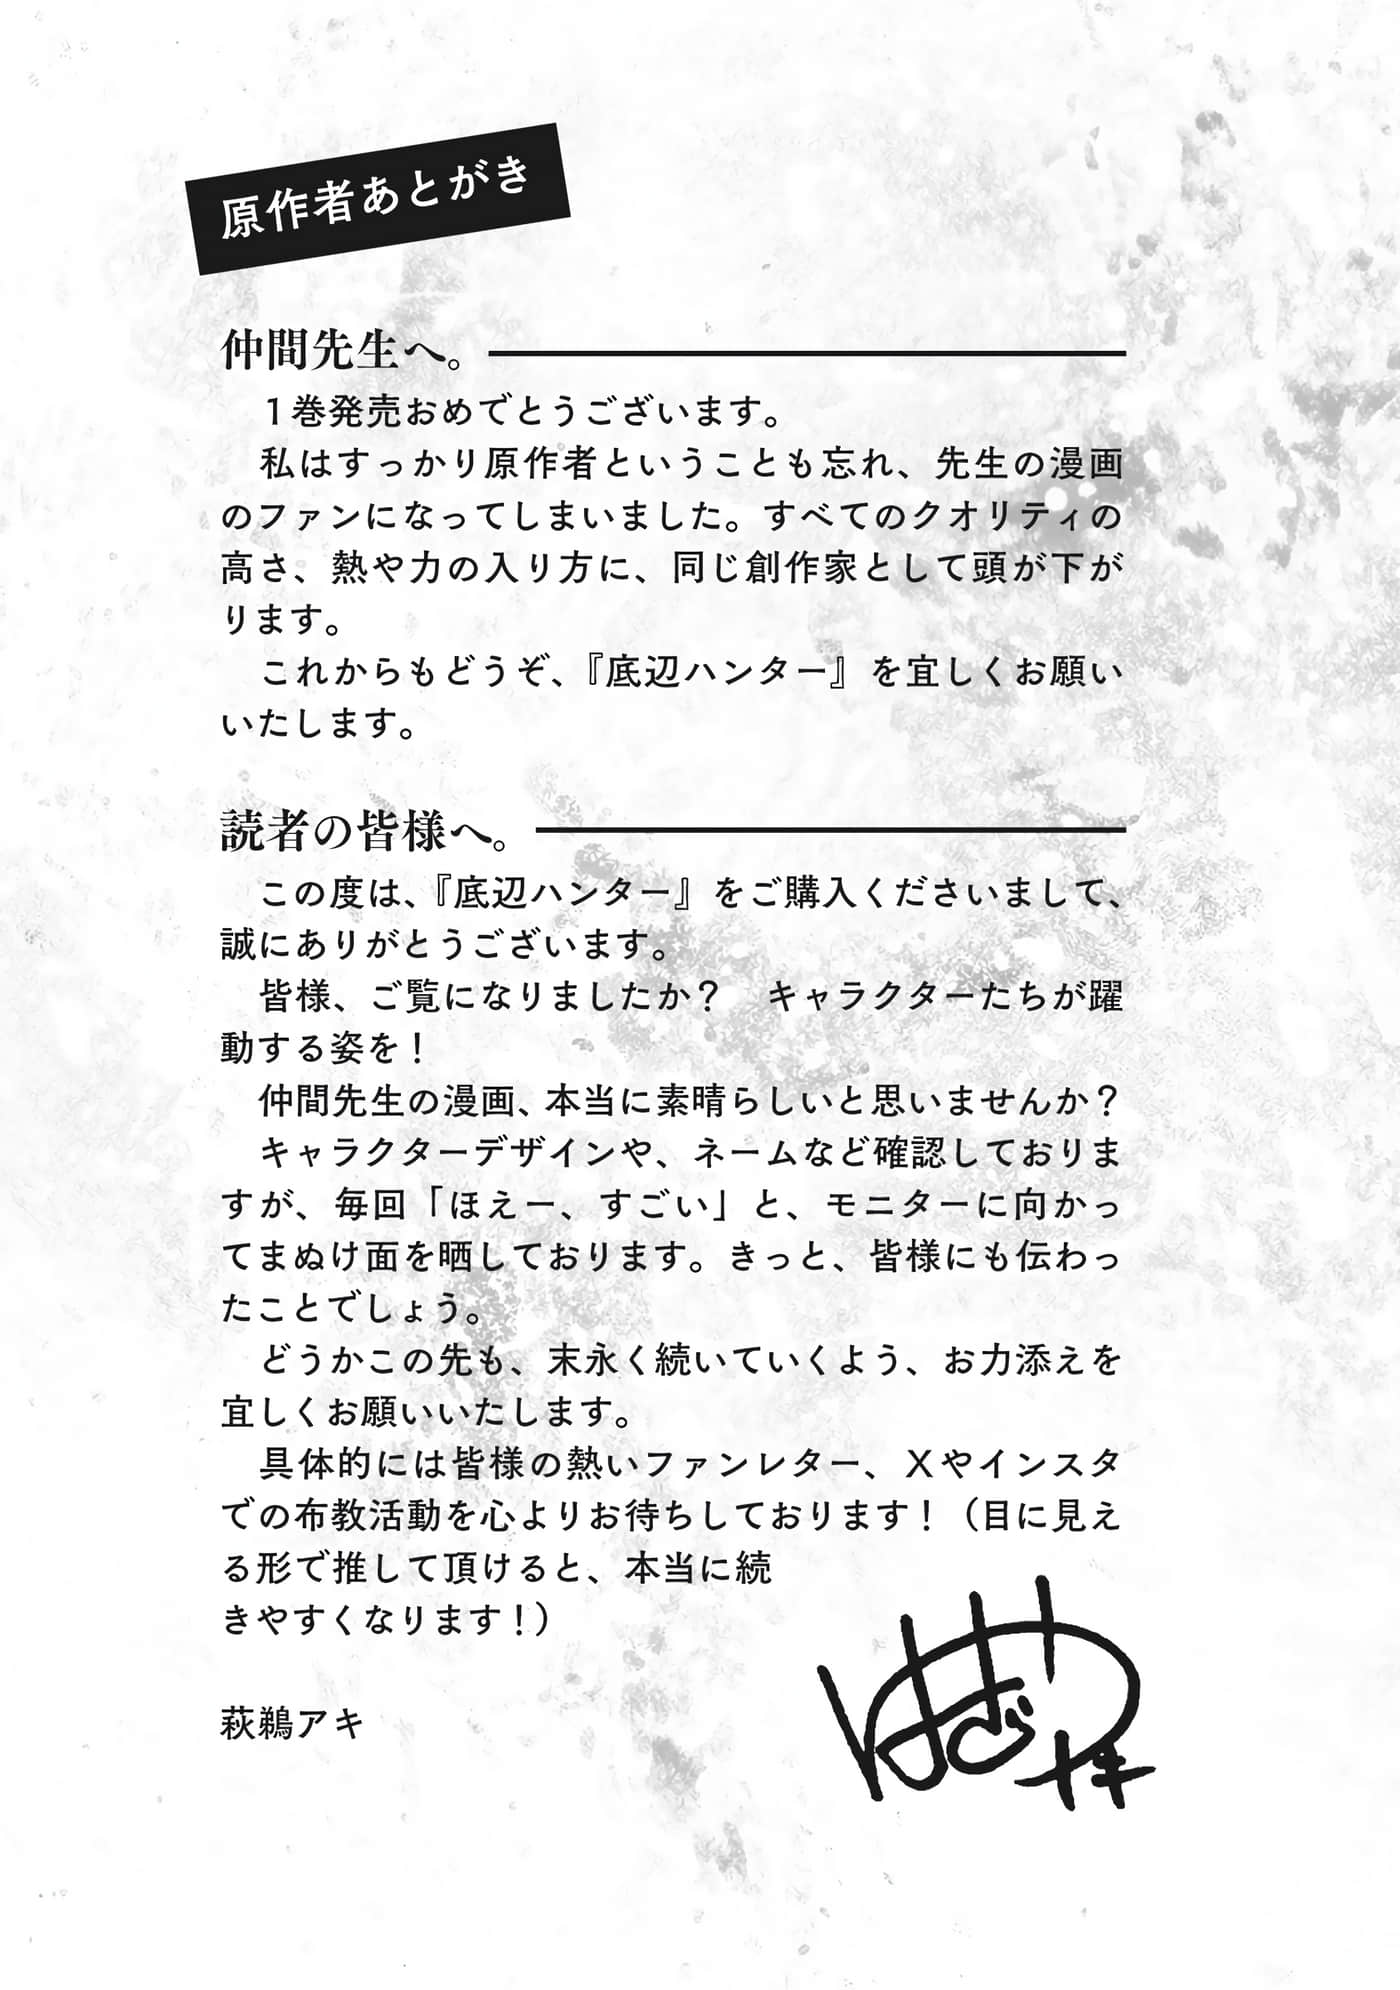 原作者あとがき
仲間先生へ。
　１巻発売おめでとうございます。
　私はすっかり原作者ということも忘れ、先生の漫画
のファンになってしまいました。すべてのクオリティの
高さ、熱や力の入り方に、同じ創作家として頭が下が
ります。
　これからもどうぞ、『底辺ハンター』を宜しくお願い
いたします。
読者の皆様へ。
　この度は、『底辺ハンター』をご購入くださいまして、
誠にありがとうございます。
　皆様、ご覧になりましたか？　キャラクターたちが躍
動する姿を！
　仲間先生の漫画、本当に素晴らしいと思いませんか？
　キャラクターデザインや、ネームなど確認しておりま
すが、毎回「ほえー、すごい」と、モニターに向かっ
てまぬけ面を晒しております。きっと、皆様にも伝わっ
たことでしょう。
　どうかこの先も、末永く続いていくよう、お力添えを
宜しくお願いいたします。
　具体的には皆様の熱いファンレター、Ｘやインスタ
での布教活動を心よりお待ちしております！（目に見え
る形で推して頂けると、本当に続
きやすくなります！）
萩鵜アキ